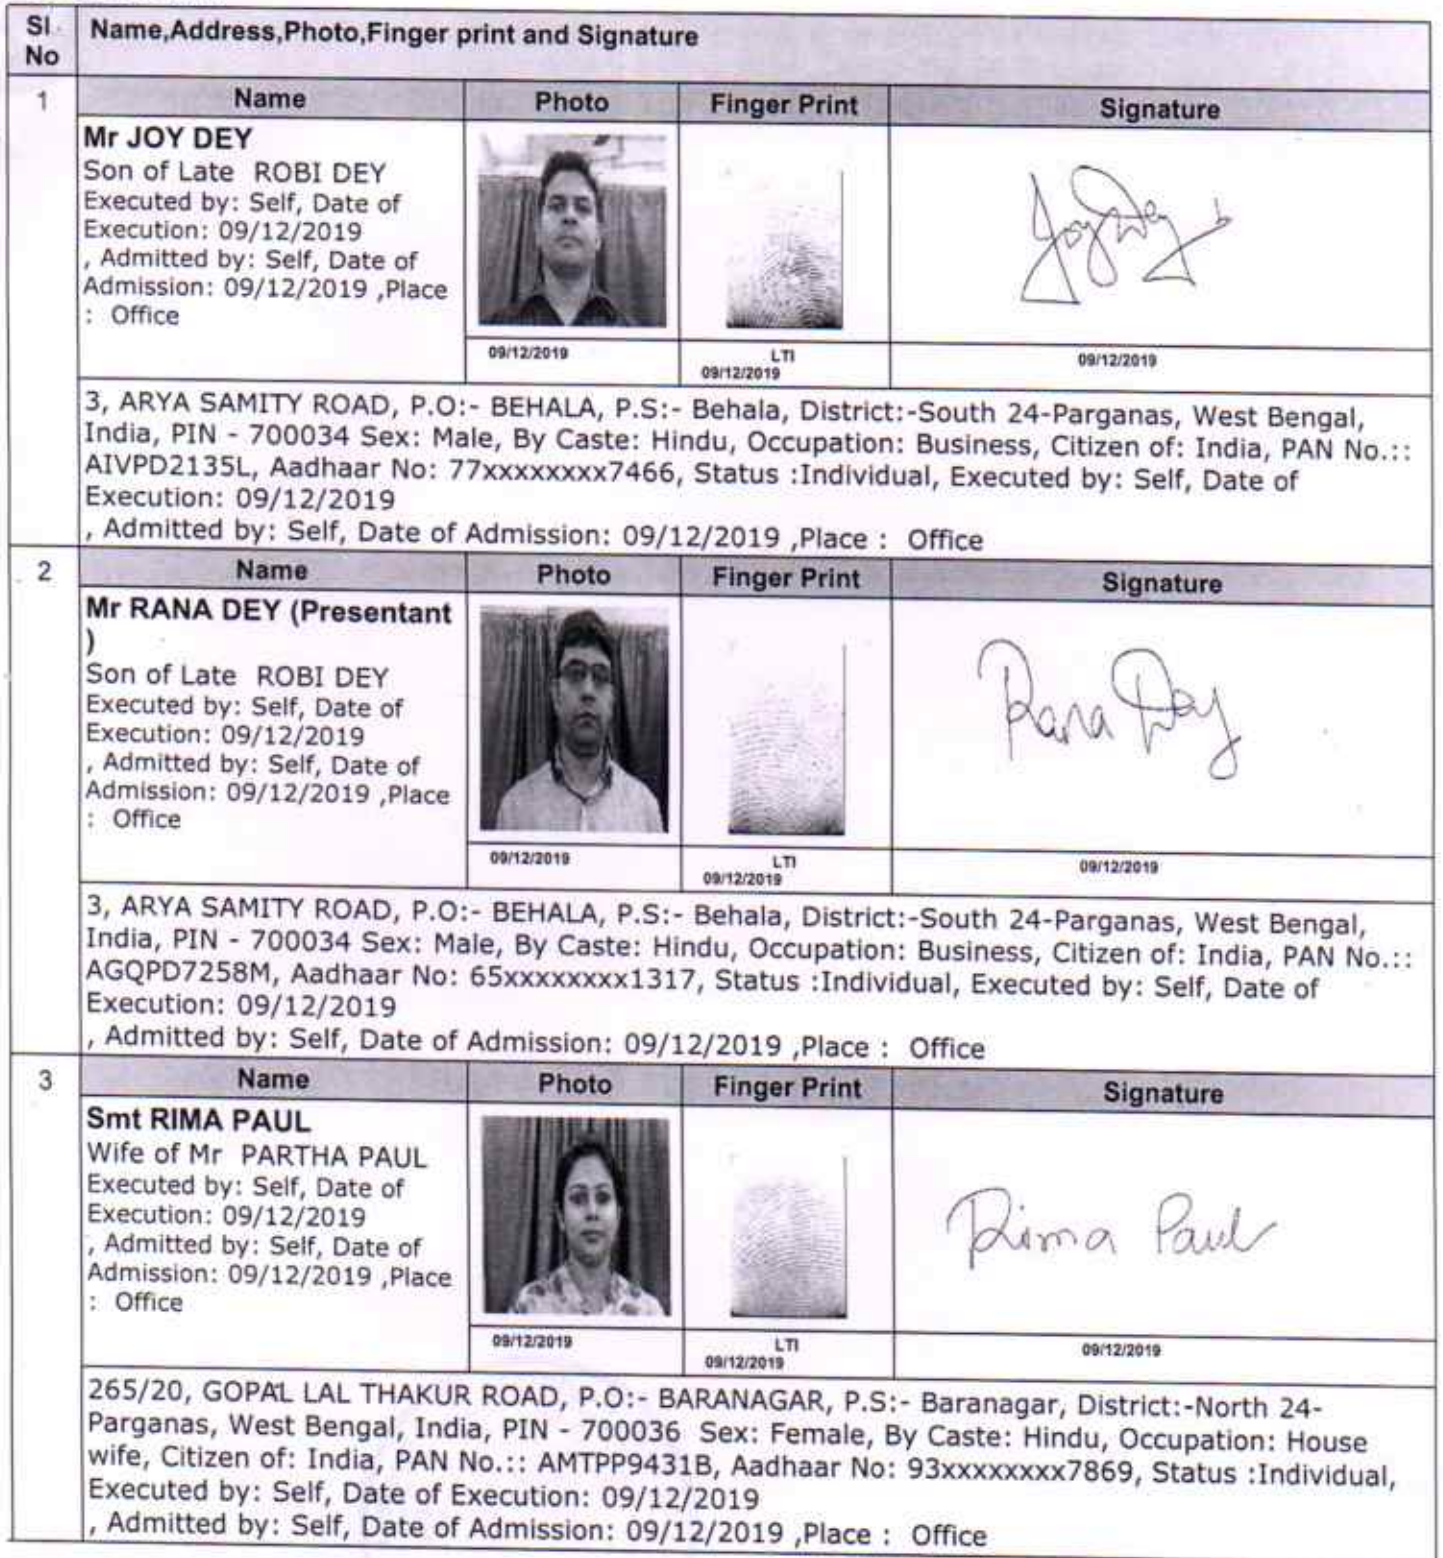 Sl. Name,Address,Photo,Finger print and Signature
No
1 Name Photo Finger Print Signature
Mr JOY DEY
Son of Late ROBI DEY
Executed by: Self, Date of
Execution: 09/12/2019
, Admitted by: Self, Date of
Admission: 09/12/2019 ,Place
: Office
Joy Dey
09/12/2019 LTI 09/12/2019
09/12/2019
3, ARYA SAMITY ROAD, P.O:- BEHALA, P.S:- Behala, District:-South 24-Parganas, West Bengal,
India, PIN - 700034 Sex: Male, By Caste: Hindu, Occupation: Business, Citizen of: India, PAN No.::
AIVPD2135L, Aadhaar No: 77xxxxxxxx7466, Status :Individual, Executed by: Self, Date of
Execution: 09/12/2019
, Admitted by: Self, Date of Admission: 09/12/2019 ,Place : Office
2 Name Photo Finger Print Signature
Mr RANA DEY (Presentant
)
Son of Late ROBI DEY
Executed by: Self, Date of
Execution: 09/12/2019
, Admitted by: Self, Date of
Admission: 09/12/2019 ,Place
: Office
Rana Dey
09/12/2019 LTI 09/12/2019
09/12/2019
3, ARYA SAMITY ROAD, P.O:- BEHALA, P.S:- Behala, District:-South 24-Parganas, West Bengal,
India, PIN - 700034 Sex: Male, By Caste: Hindu, Occupation: Business, Citizen of: India, PAN No.::
AGQPD7258M, Aadhaar No: 65xxxxxxxx1317, Status :Individual, Executed by: Self, Date of
Execution: 09/12/2019
, Admitted by: Self, Date of Admission: 09/12/2019 ,Place : Office
3 Name Photo Finger Print Signature
Smt RIMA PAUL
Wife of Mr PARTHA PAUL
Executed by: Self, Date of
Execution: 09/12/2019
, Admitted by: Self, Date of
Admission: 09/12/2019 ,Place
: Office
Rima Paul
09/12/2019 LTI 09/12/2019
09/12/2019
265/20, GOPAL LAL THAKUR ROAD, P.O:- BARANAGAR, P.S:- Baranagar, District:-North 24-
Parganas, West Bengal, India, PIN - 700036 Sex: Female, By Caste: Hindu, Occupation: House
wife, Citizen of: India, PAN No.:: AMTPP9431B, Aadhaar No: 93xxxxxxxx7869, Status :Individual,
Executed by: Self, Date of Execution: 09/12/2019
, Admitted by: Self, Date of Admission: 09/12/2019 ,Place : Office